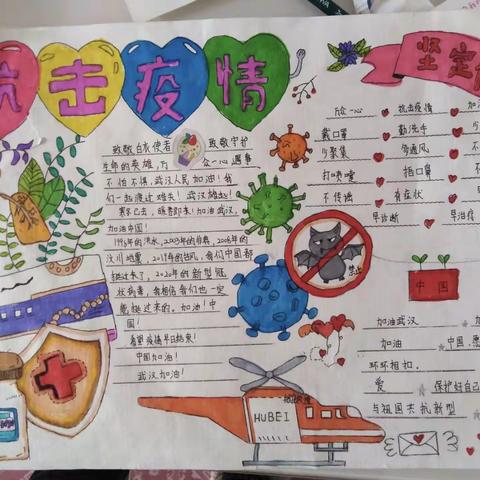 抗击疫情
坚定
致敬白衣使者 致敬守护
生命的英雄,万众一心 遇事
不怕不惧,武汉人民加油!我
们一起渡过难关!武汉雄起!
寒冬已去,暖春即来!加油武汉,
加油中国!
1998年的洪水,2003年的非典,2008年的
汶川地震,2019年的台风,我们中国都
挺过来了,2020年的新型冠
状病毒,我相信我们也一定
能挺过来的。加油!中
国!
希望疫情早日结束!
中国加油!
武汉加油!
众一心 抗击疫情 加
戴口罩 勤洗手 少
少聚集 常通风 不
打喷嚏 捂口鼻
不传谣 有症状
早诊断 早治疗
禁止
中国
加油武汉 加
加油 中国,愿
环环相扣。
爱 保护好自己
与祖国共抗新型
HUBEI